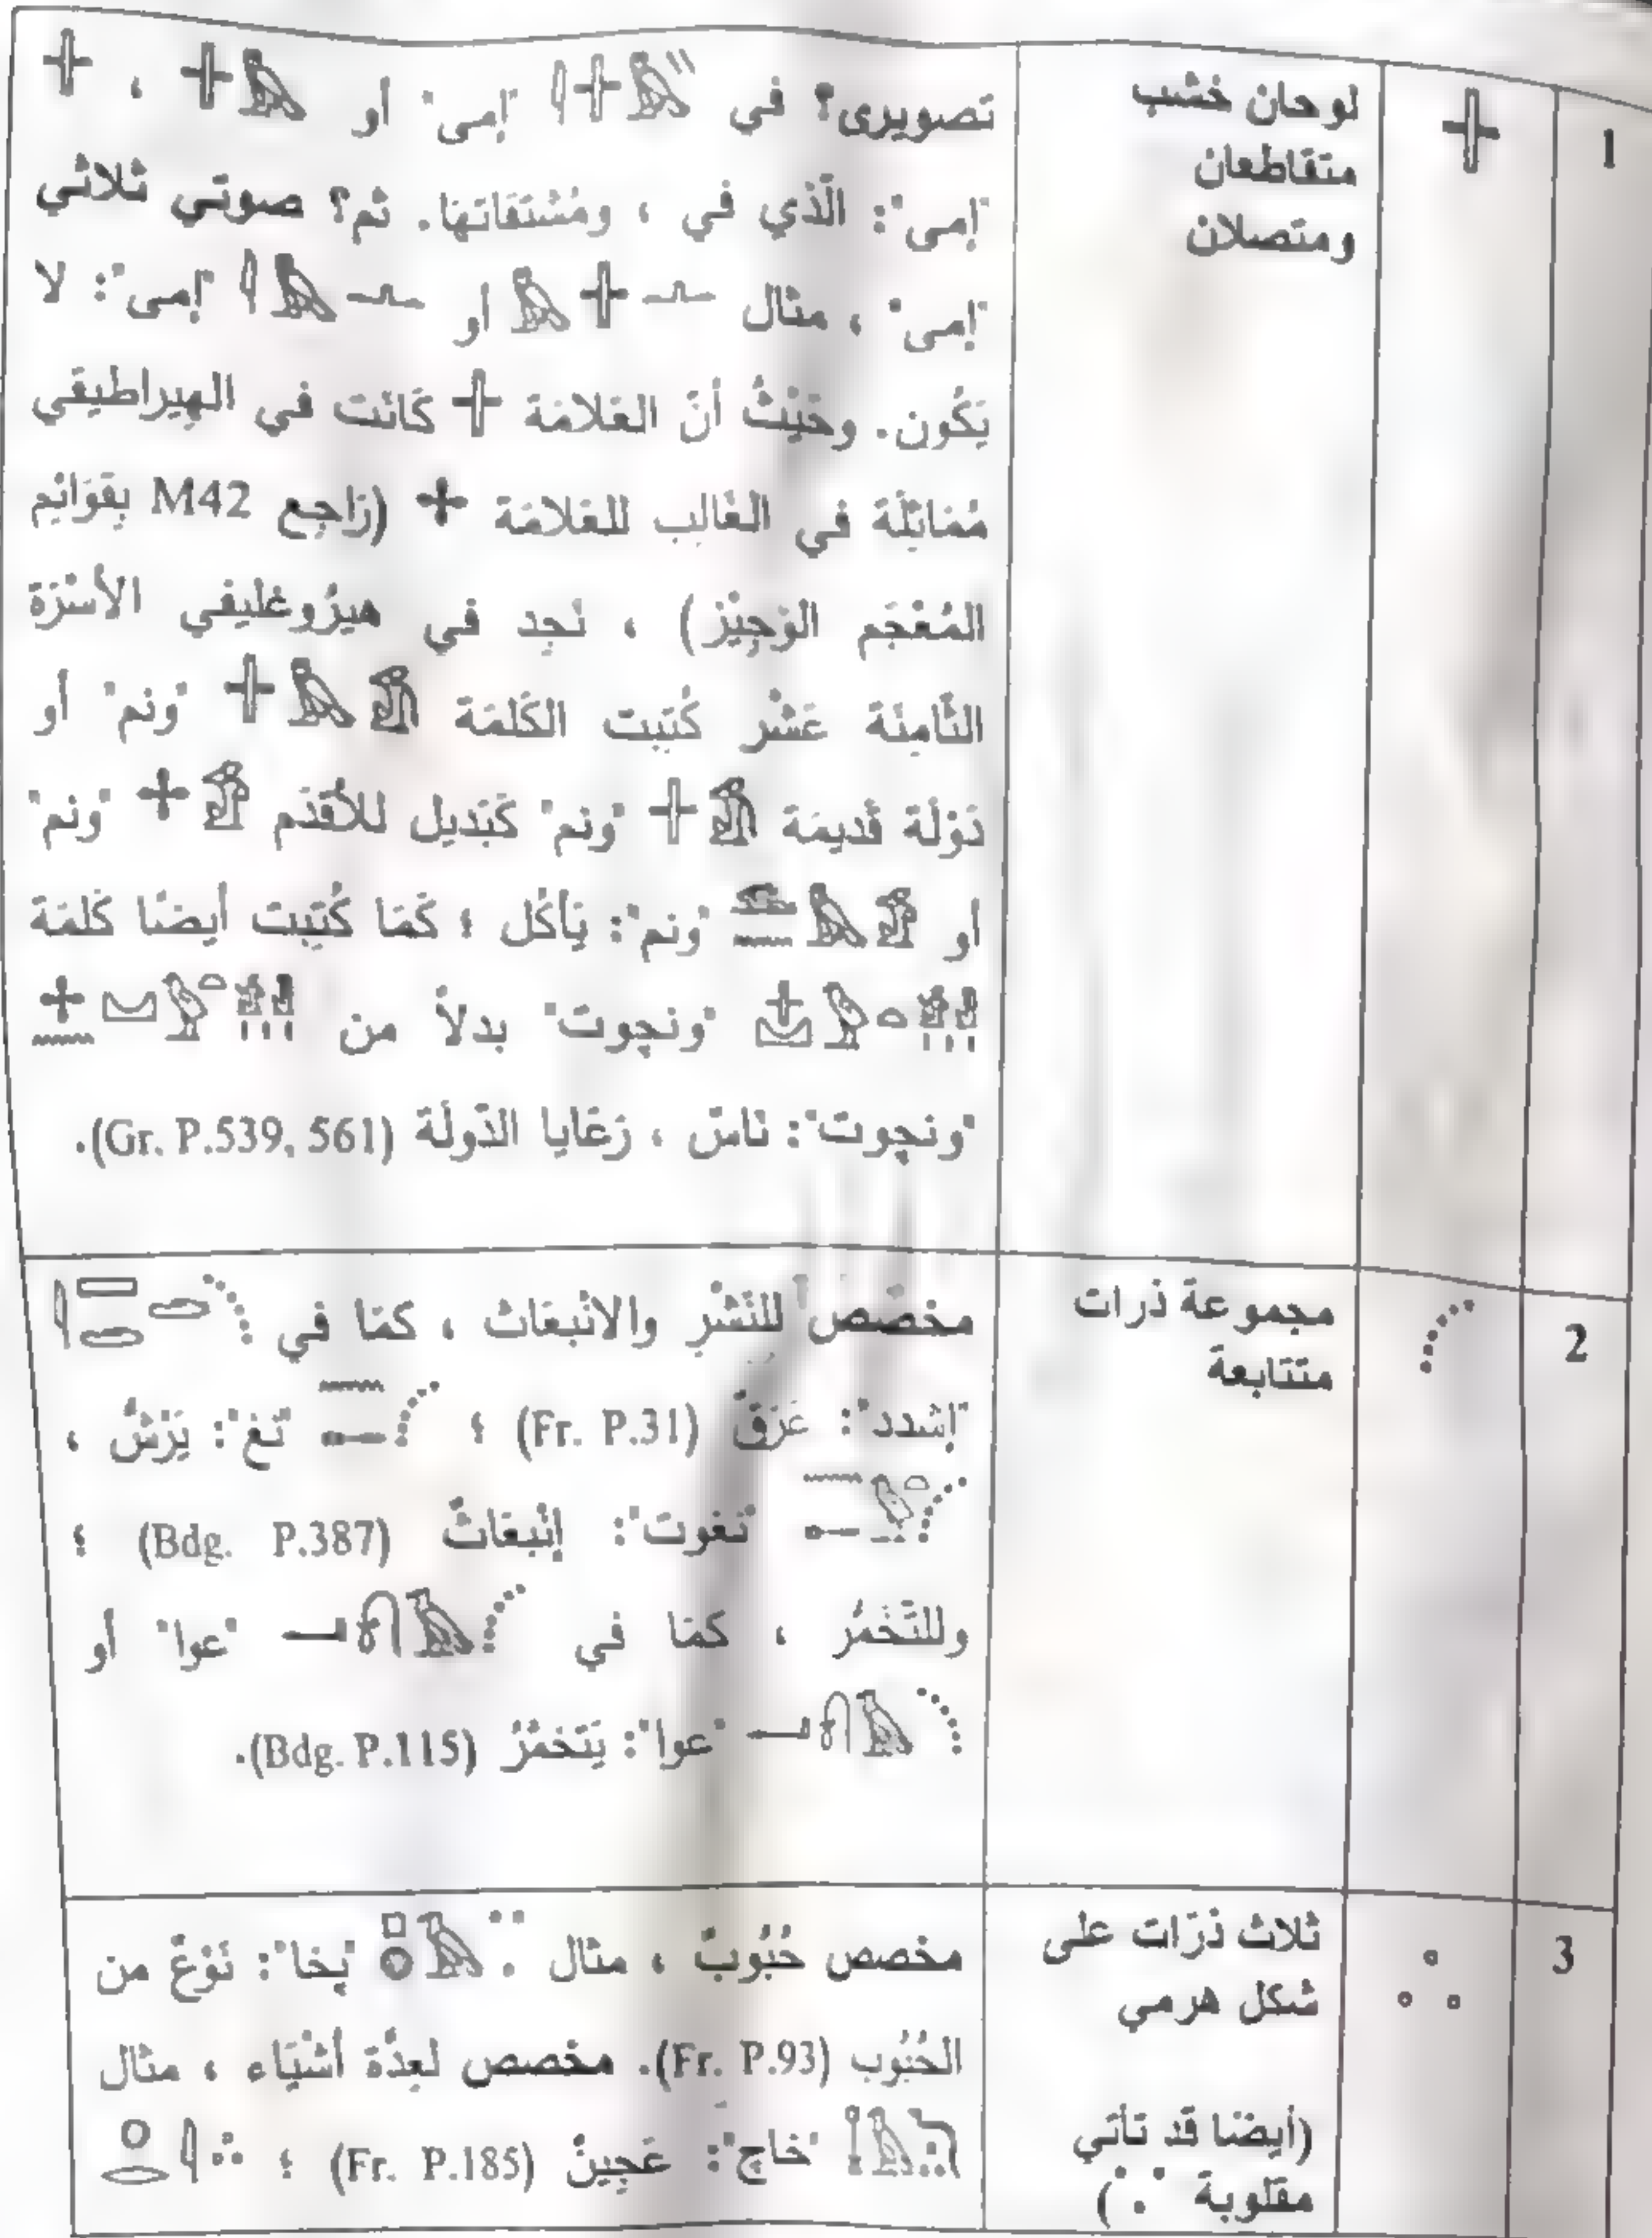 1
لوحان خشب
متقاطعان
ومتصلان
تصويرى؟ في "إمى" أو ،
"إمى": الّذي في ، ومُشتقاتها. ثم؟ صوتي ثلاثي
"إمى" ، مثال أو "إمى": لا
يَكُون. وحَيْثُ أنّ العَلامَة كَانَت في الهِيراطيقي
مُمَاثِلَة في الغَالِب للعَلامَة (رَاجِع M42 بِقَوَائِم
المُعْجَم الوَجِيْز) ، نَجِد في هيرُوغليفي الأسْرَة
الثّامِنَة عَشْر كُتِبت الكَلمَة "ونم" أو
دَوْلَة قَديمَة "ونم" كَبَديل للأقْدَم "ونم"
أو "ونم": يَأكُل ؛ كَمَا كُتِبت أيضًا كَلمَة
"ونچوت" بدلاً من
"ونچوت": نَاسّ ، رَعَايا الدّولَة (Gr. P.539, 561).
2
مجموعة ذرات
متتابعة
مخصّص للنَشْرِ والانْبعَاث ، كمَا في
"إشدد": عَرَقٌ (Fr. P.31) ؛ "نغ": يَرْشُ ،
"نغوت": إنْبعَاثٌ (Bdg. P.387) ؛
وللتَّخَمُر ، كمَا في "عوا" أو
"عوا": يَتَخَمَّرُ (Bdg. P.115).
3
ثلاث ذرَات على
شكل هرمي
(أيضًا قد تأتي
مقلوبة )
مخصص حُبُوبٌ ، مثال "پخا": نَوْعٌ من
الحُبُوب (Fr. P.93). مخصص لعدّة أشْيَاء ، مثال
"خاچ": عَجِينٌ (Fr. P.185) ؛